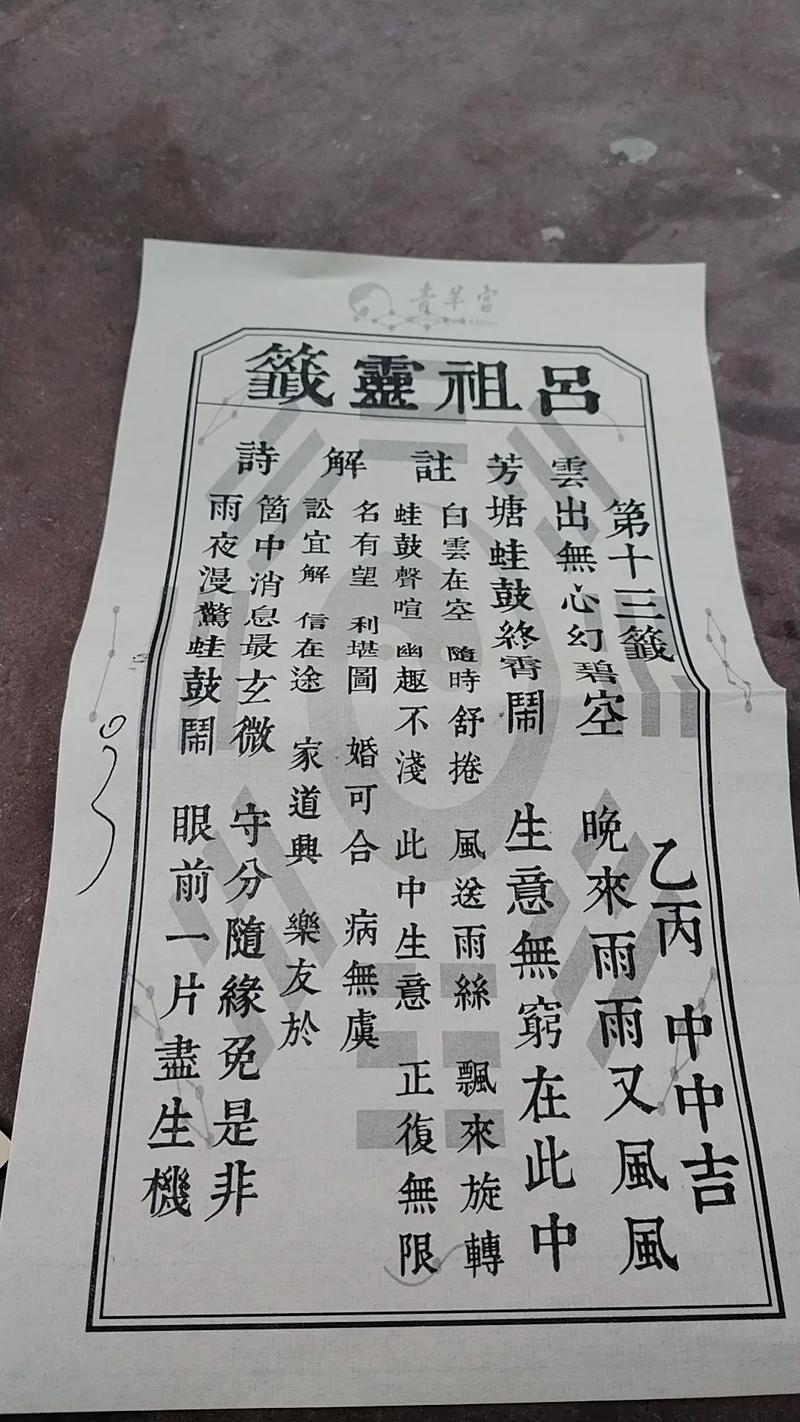 青羊宮
呂祖靈籤
第十三籤 乙丙 中中吉
雲出無心幻碧空 晚來雨雨又風風
芳塘蛙鼓終宵鬧 生意無窮在此中
註 白雲在空 隨時舒捲 風送雨絲 飄來旋轉
蛙鼓聲喧 幽趣不淺 此中生意 正復無限
解 名有望 利堪圖 婚可合 病無虞
訟宜解 信在途 家道興 樂友於
詩 箇中消息最玄微 守分隨緣免是非
雨夜漫驚蛙鼓鬧 眼前一片盡生機